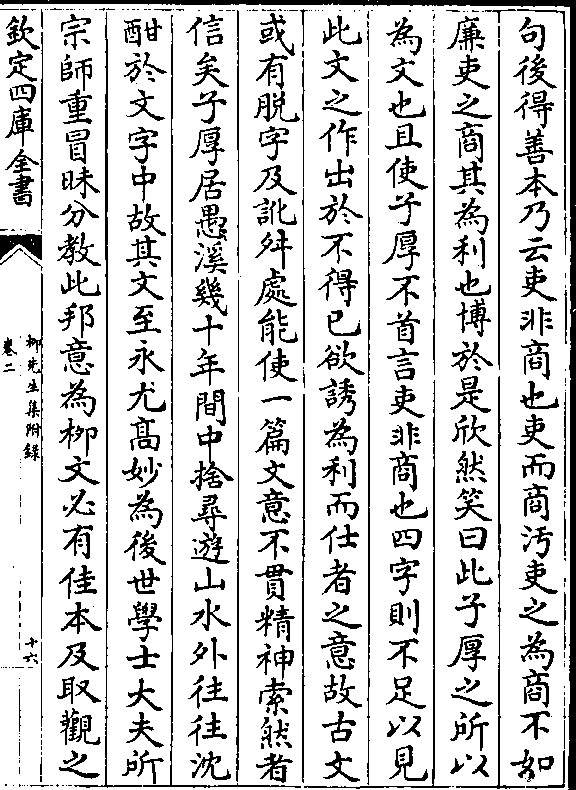 句後得善本乃云吏非商也吏而商汚吏之為商不如
廉吏之商其為利也博於是欣然笑曰此子厚之所以
為文也且使子厚不首言吏非商也四字則不足以見
此文之作出於不得已欲誘為利而仕者之意故古文
或有脱字及訛舛處能使一篇文意不貫精神索然者
信矣子厚居愚溪幾十年間中捨尋遊山水外往往沈
酣於文字中故其文至永尤高妙為後世學士大夫所
宗師重冒昧分教此邦意為柳文必有佳本及取觀之
欽定四庫全書
柳先生集附録
卷二
十六